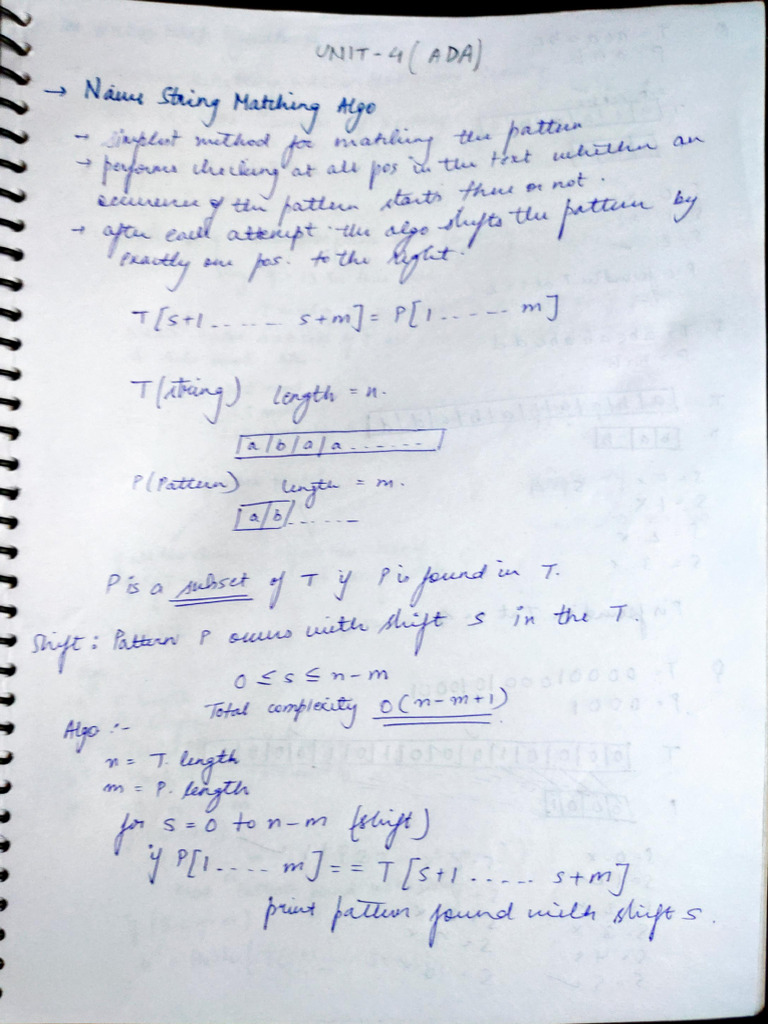 UNIT-4 (ADA)
→ Naive String Matching Algo
→ simplest method for matching the pattern
→ performs checking at all pos in the text whether an
occurence of the pattern starts there or not.
→ after each attempt the algo shifts the pattern by
exactly one pos. to the right.
T[s+1 ...... s+m] = P[1 ...... m]
T(string) length = n.
|a|b|a|a.......|
P(Pattern) length = m.
|a|b|......
P is a subset of T if P is found in T.
Shift: Pattern P occurs with shift s in the T.
0 ≤ s ≤ n-m
Total complexity O(n-m+1)
Algo :-
n = T. length
m = P. length
for s = 0 to n-m (shift)
if P[1 ..... m] == T[s+1 ..... s+m]
print pattern found with shift s.